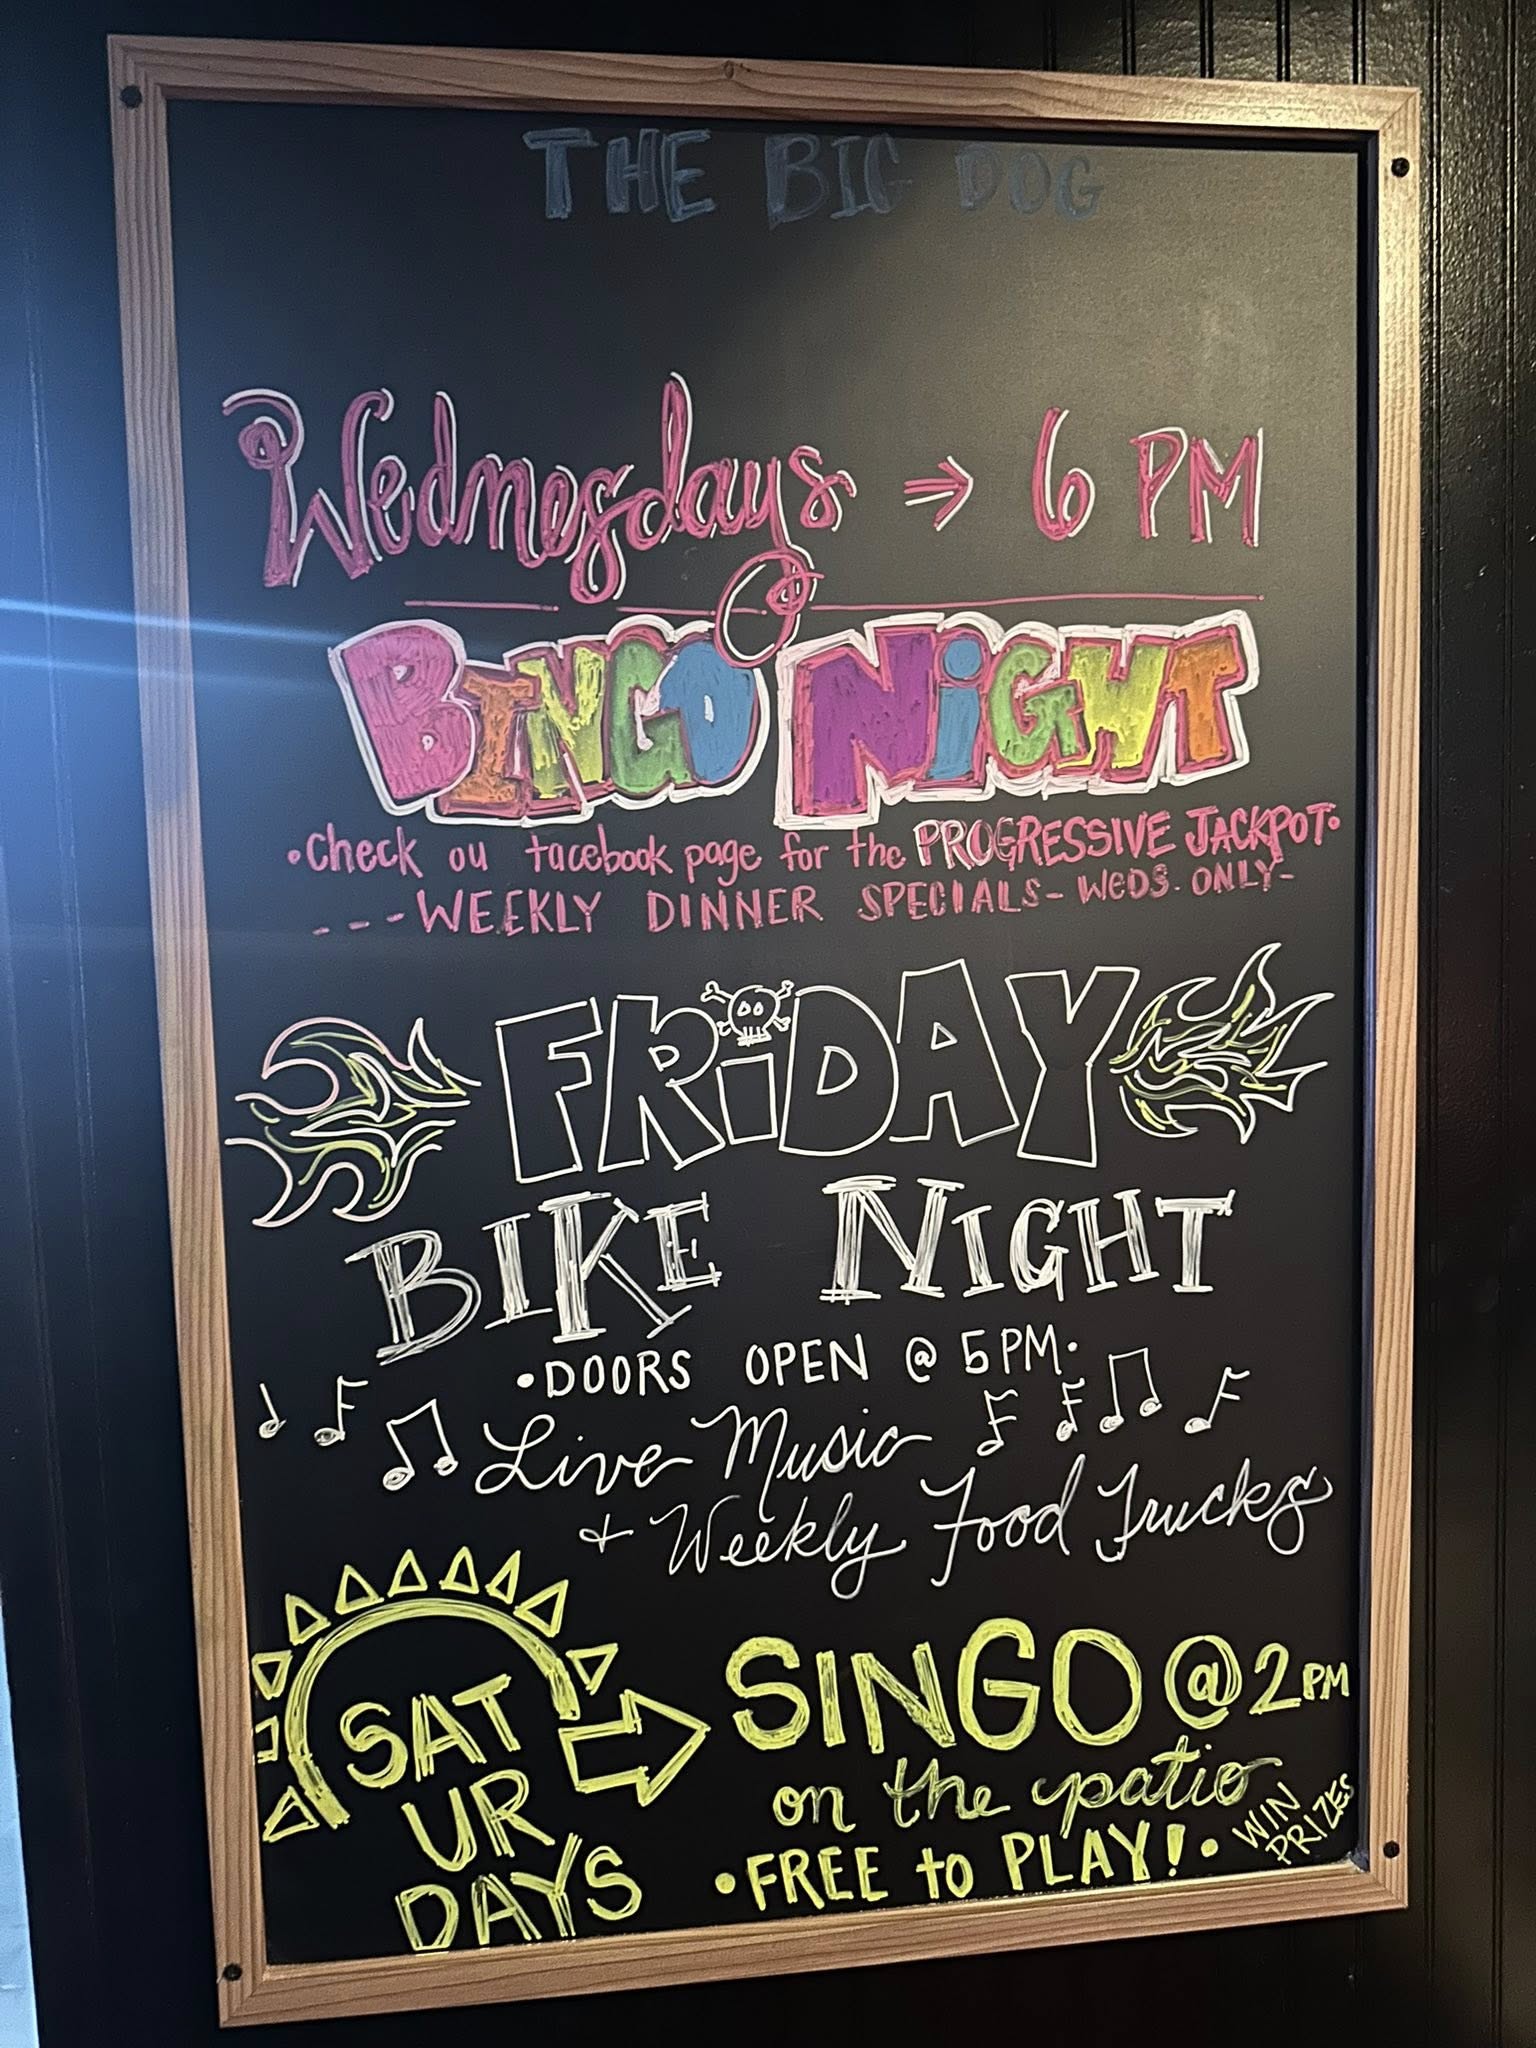 THE BIG DOG
Wednesdays → 6 PM
BINGO NiGHT
•check ou facebook page for the PROGRESSIVE JACKPOT•
---WEEKLY DINNER SPECIALS- WeDS. ONLY-
FRiDAY
BIKE NIGHT
•DOORS OPEN @ 5 PM•
Live Music
+ Weekly Food Trucks
SAT
UR
DAYS
SINGO @ 2PM
on the patio
•FREE to PLAY!•
WIN
PRIZES